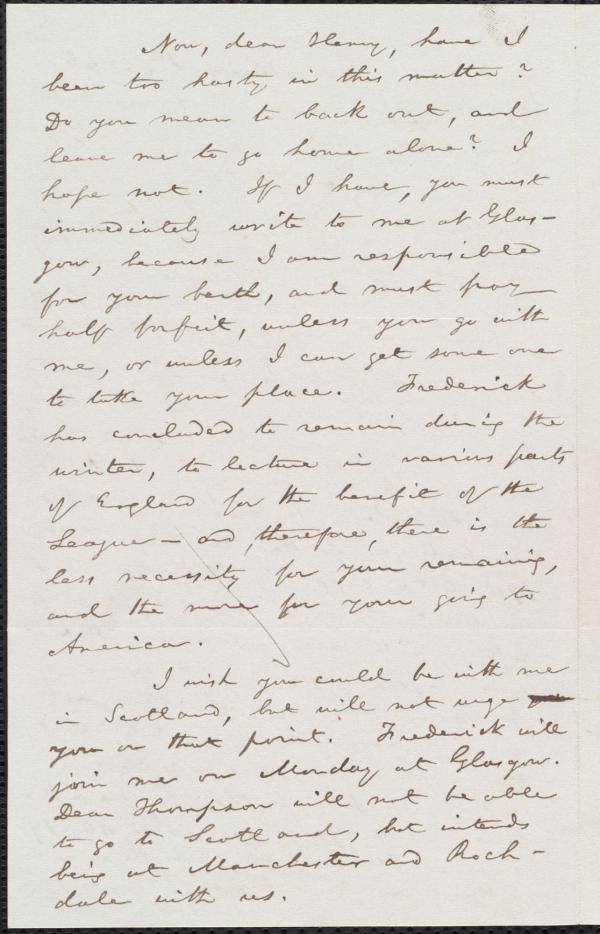 Now, dear Henry, have I
been too hasty in this matter?
Do you mean to back out, and
leave me to go home alone? I
hope not. If I have, you must
immediately write to me at Glas-
gow, because I am responsible
for your berth, and must pay
half forfeit, unless you go with
me, or unless I can get some one
to take your place. Frederick
has concluded to remain during the
winter, to lecture in various parts
of England for the benefit of the
League – and, therefore, there is the
less necessity for your remaining,
and the more for your going to
America.
I wish you could be with me
in Scotland, but will not urge
you on that point. Frederick will
join me on Monday at Glasgow.
Dear Thompson will not be able
to go to Scotland, but intends
being at Manchester and Roch-
dale with us.